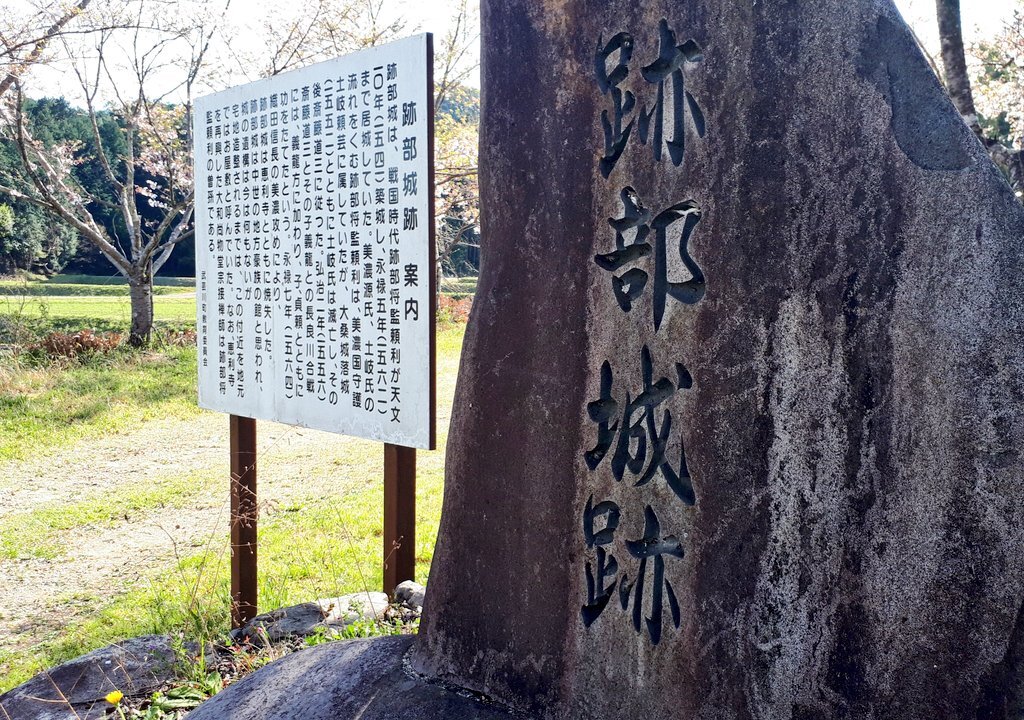 跡部城跡　案内
跡部城は、戦国時代跡部将監頼利が天文
一〇年（一五四一）築城し、永禄五年（一五六二）
まで居城していた。美濃源氏、土岐氏の
流れをくむ跡部将監頼利は、美濃国守護
土岐頼芸に属していたが、大桑城落城
（一五五二）とともに土岐氏は滅亡し、その
後斎藤道三に従った。弘治二年（一五五六）
斎藤道三とその子義龍との長良川合戦
には、義龍方に加わり、子、貞頼とともに
功をたてたという。永禄七年（一五六四）
織田信長の美濃攻めにより、
跡部城は恵利寺とともに焼失した。
跡部城は中世の地方豪族の館と思われ、
城の遺構は今は何もないが
宅地造整されるまでは、この付近を地元
ではお屋敷と呼んでいた。なお、恵利寺
を再興した大和尚物堂宗接禅師は跡部将
監頼利の曽孫である。
武芸川町教育委員会
跡部城跡